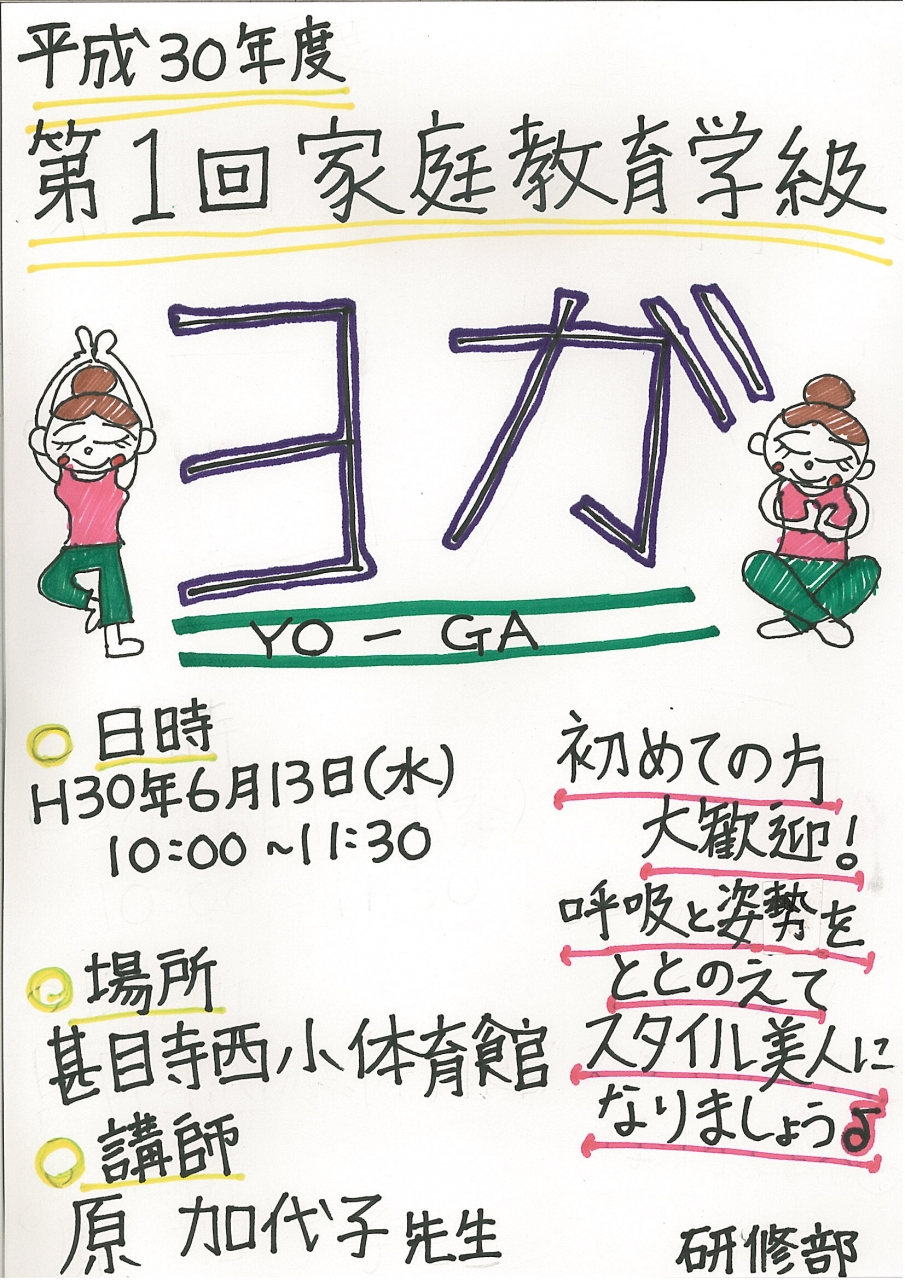 平成30年度
第1回家庭教育学級
ヨガ
YO－GA
日時
H30年6月13日(水)
10:00～11:30
場所
甚目寺西小体育館
講師
原 加代子先生
初めての方
大歓迎!
呼吸と姿勢を
ととのえて
スタイル美人に
なりましょう♪
研修部